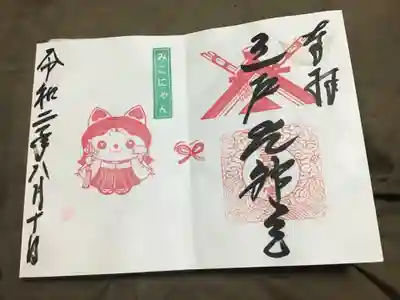 奉拝
三戸大神宮
みこにゃん
令和二年八月十日